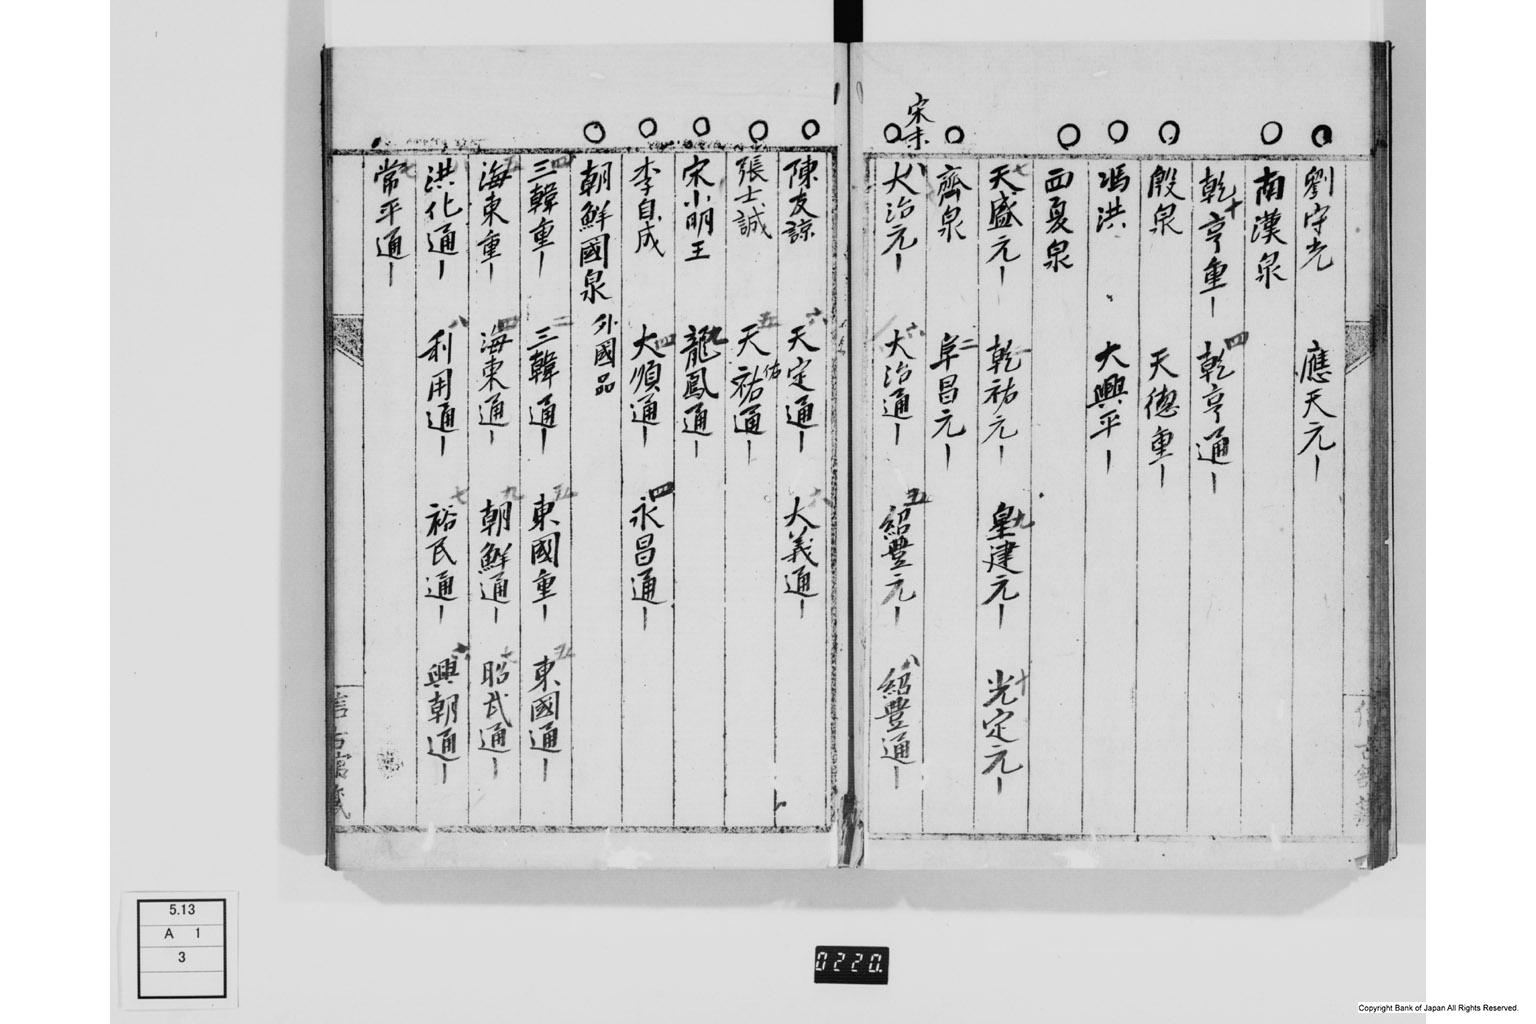 劉守光 應天元｜
南漢泉
十乾亨重｜ 四乾亨通｜
殷泉 天德重｜
馮洪 大興平｜
西夏泉
七天盛元｜ 乾祐元｜ 九皇建元｜ 十光定元｜
齊泉 二阜昌元｜
宋末
八大治元｜ 六大治通｜ 五紹豊元｜ 八紹豊通｜
陳友諒 六天定通｜ 六大義通｜
張士誠 五天祐通｜
佑
宋小明王 龍鳳通｜
李自成 四大順通｜ 四永昌通｜
朝鮮國泉 外國品
四三韓重｜ 二三韓通｜ 五東國重｜ 五東國通｜
五海東重｜ 四海東通｜ 九朝鮮通｜ 七昭武通｜
洪化通｜ 八利用通｜ 七裕民通｜ 六興朝通｜
七常平通｜
5.13
A 1
3
0220.
Copyright Bank of Japan All Rights Reserved.